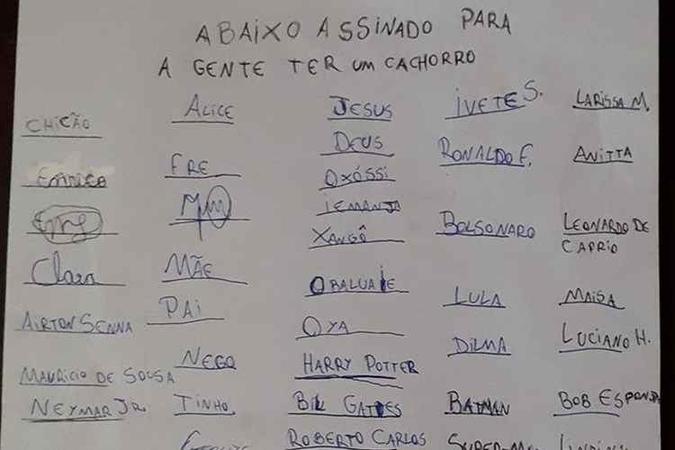 ABAIXO ASSINADO PARA
A GENTE TER UM CACHORRO
CHICÃO
Clara
AIRTON SENNA
MAURICIO DE SOUSA
NEYMAR JR.
ALICE
FRE
MÃE
PAI
NEGO
TINHO
JESUS
DEUS
OXÓSSI
IEMANJA
XANGÔ
OBALUAIE
OYA
HARRY POTTER
BILL GATES
ROBERTO CARLOS
IVETE S.
RONALDO F.
BOLSONARO
LULA
DILMA
BATMAN
LARISSA M.
ANITTA
LEONARDO DE
CAPRIO
MAISA
LUCIANO H.
BOB ESPONJA